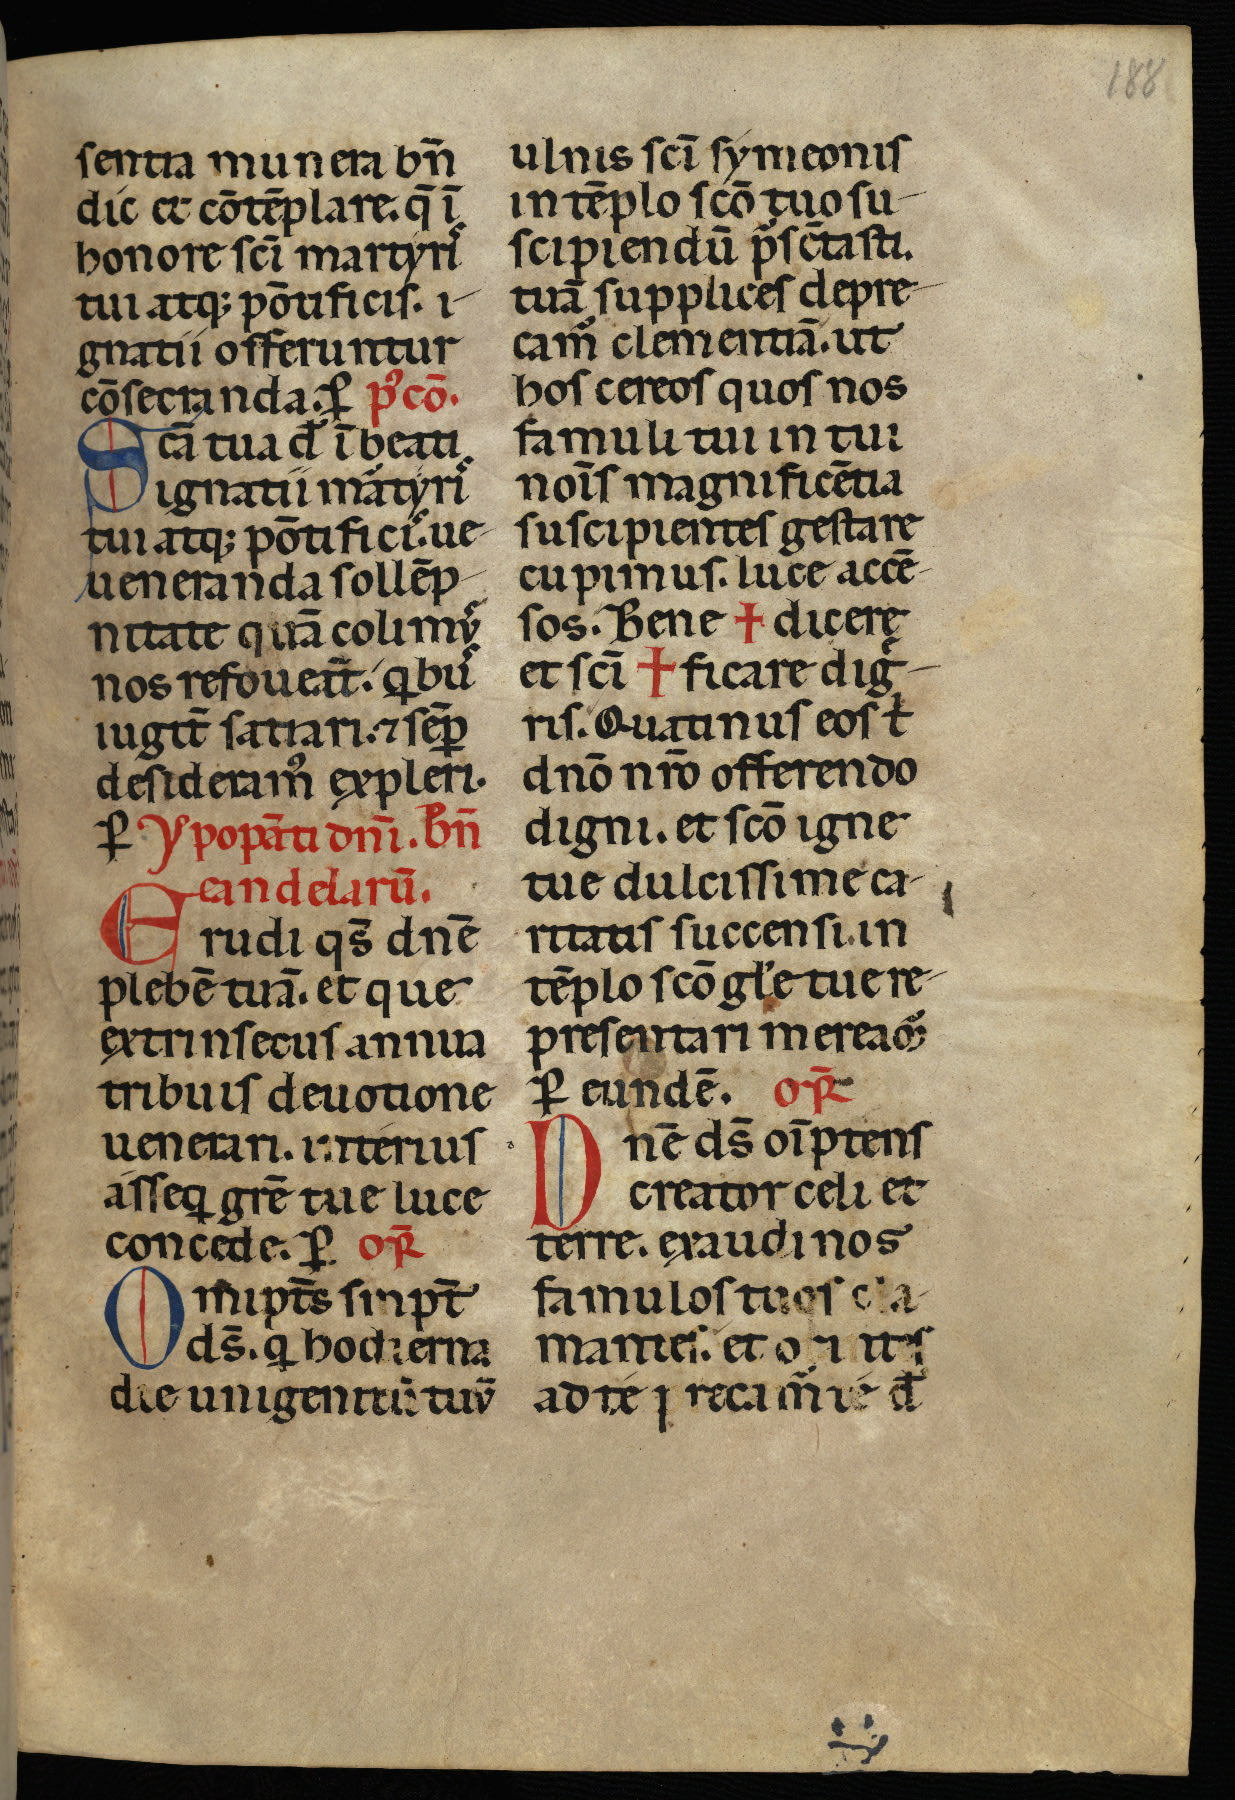 188
sentia munera bn̄
dic et cōtēplare. q̄ ī
honore sc̄i martyrꝰ
tui atq; pōtificis. i-
gnatii offeruntur
cōsecranda. ꝑ pꝰcō.
Scā tua d̄ ī beati
ignatii martyrꝰ
tui atq; pōtificꝰ. ue-
ueneranda sollēp-
nitate quā colimꝰ
nos refoueat̄. qbuꝰ
iugit̄ satiari. ⁊ sēꝑ
desideramꝰ expleri.
ꝑ Ypopāti dn̄i. bn̄
candelarū.
Erudi qs̄ dn̄e
plebē tuā. et que
extrinsecus annua
tribuis deuotione
uenerari. interius
asseq grē tue luce
concede. ꝑ or̄
Omipt̄s sn̄pt̄
ds̄. q hodierna
die unigenitū tuū
ulnis sc̄i symeonis
in tēplo scō tuo su-
scipiendū p̄sētasti.
tuā supplices depre-
camꝰ clementiā. ut
hos cereos quos nos
famuli tui in tui
noīs magnificētia
suscipientes gestare
cupimus. luce accē-
sos. Bene ✝ dicere
et sc̄i ✝ ficare diḡ-
ris. Quatinus eos t̄
dn̄o nr̄o offerendo
digni. et scō igne
tue dulcissime ca-
ritatis succensi. in
tēplo scō gl̄e tue re-
presentari mereamꝰ
ꝑ eundē. or̄
Dn̄e ds̄ oīptens
creator celi et
terre. exaudi nos
famulos tuos cla-
mantes. et orantes
ad te precamꝰ te d̄